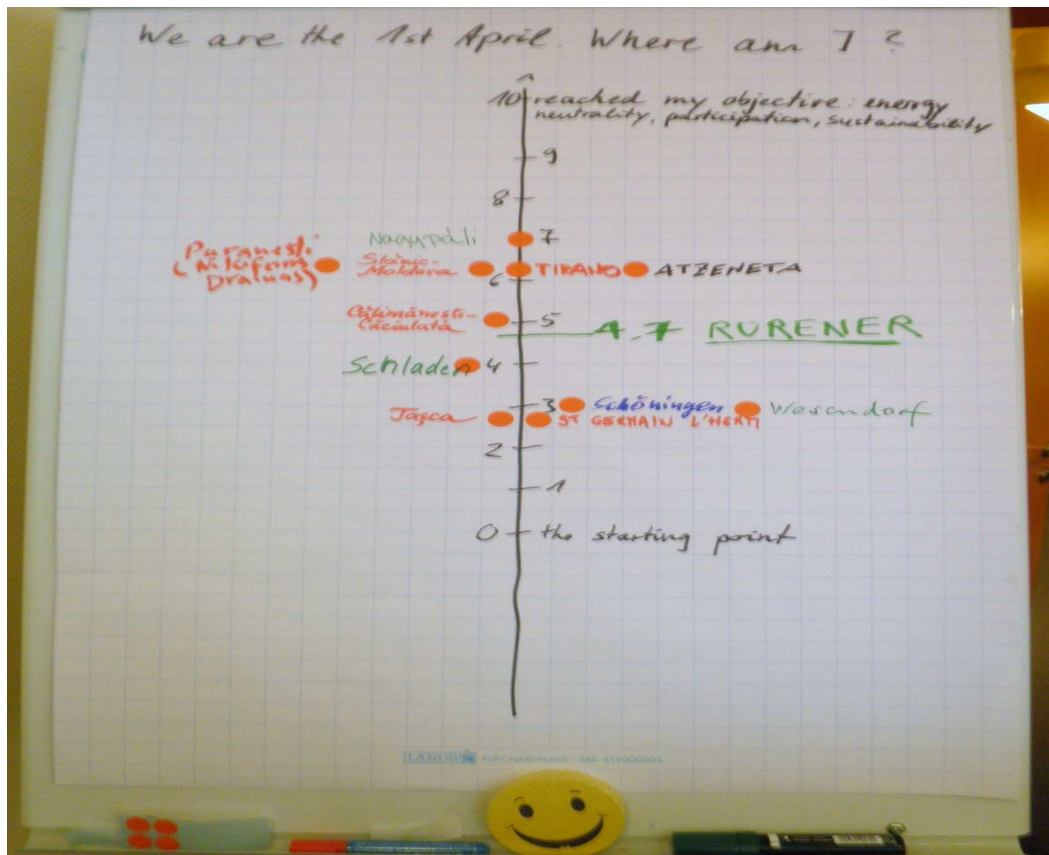 We are the 1st April. Where am I ?
10 reached my objective: energy
neutrality, participation, sustainability
9
8
Nagypáli 7
Paranesti
(Nikiforos
Dramas)
Slănic-
Moldova
TIRANO ATZENETA
6
Călimănești-
Căciulată
5
4.7 RURENER
Schladen 4
3 Schöningen Wesendorf
Taşca ST GERMAIN L'HERM
2
1
0 the starting point
LANDRÉ